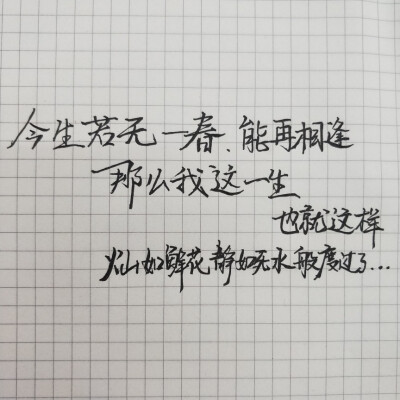 今生若无一春、能再相逢
那么我这一生
也就这样
灿如鲜花静如死水般度过了...